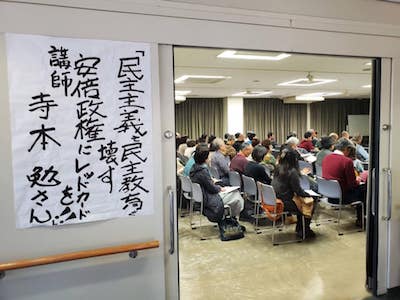 「民主主義・民主教育」
壊す
安倍政権にレッドカード
を!!
講師 寺本 勉さん